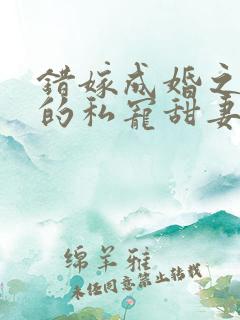 错嫁成婚之
的私宠甜妻
绵羊雅
未经同意禁止转载